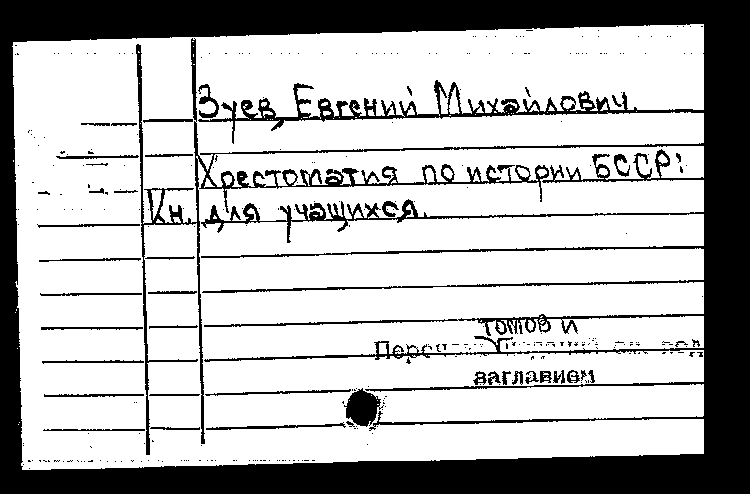 Зуев, Евгений Михайлович.
Хрестоматия по истории БССР:
Кн. для учащихся.
томов и
Перечень изданий см. под
заглавием